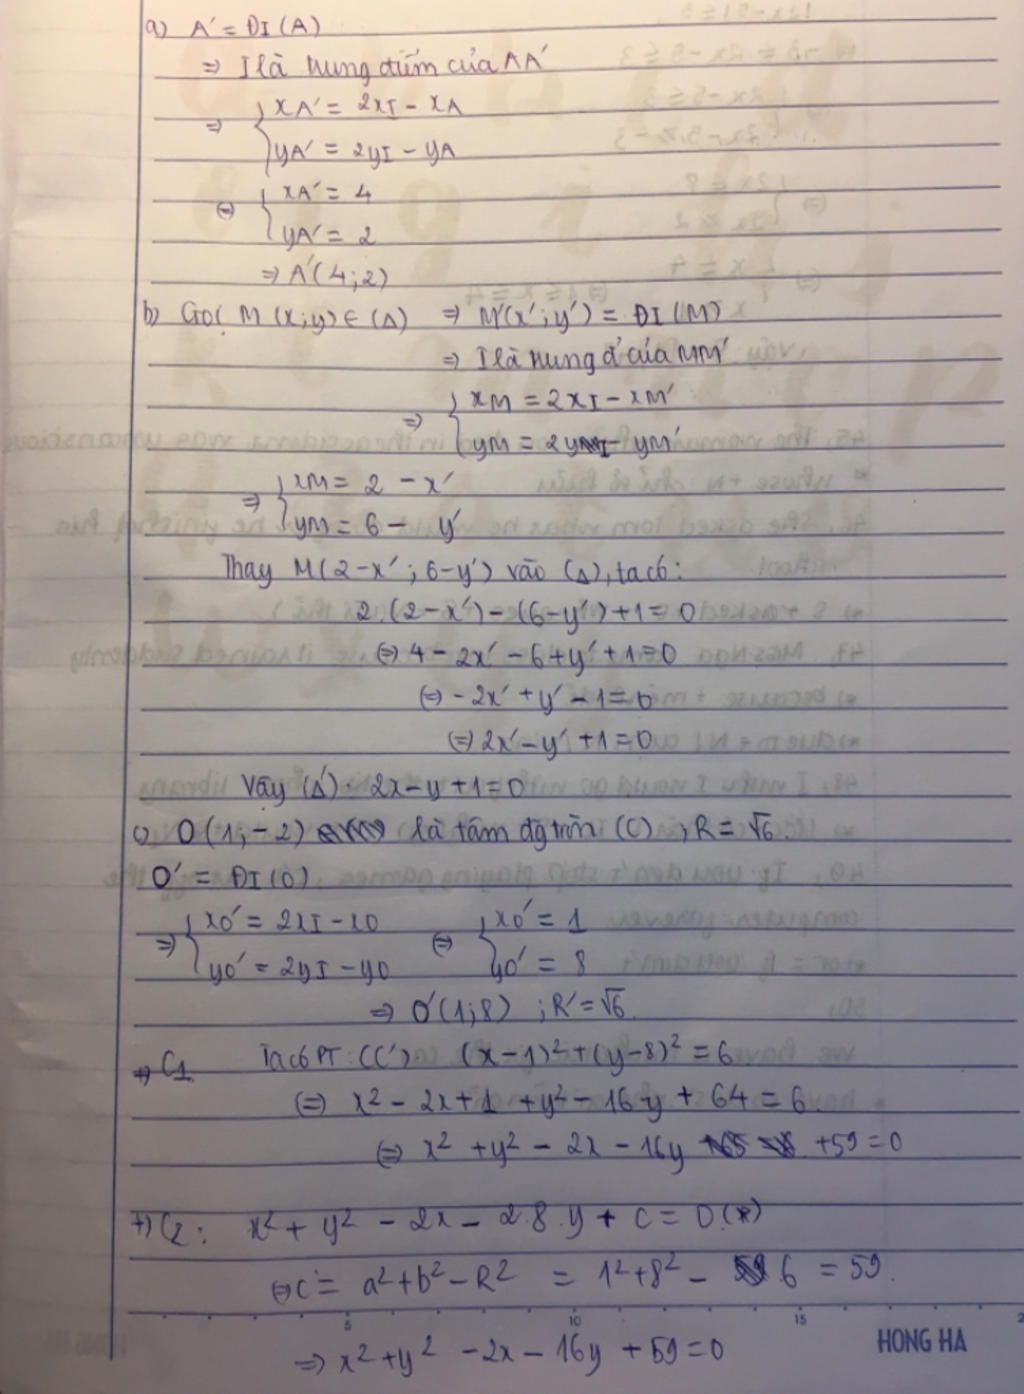 a) A' = ĐI (A)
⇒ I là trung điểm của AA'
⇒ { xA' = 2xI - xA
yA' = 2yI - yA
⇔ { xA' = 4
yA' = 2
⇒ A'(4;2)
b) Gọi M (x;y) ∈ (Δ) ⇒ M'(x';y') = ĐI (M)
⇒ I là trung đ' của MM'
⇒ { xM = 2xI - xM'
yM = 2yI - yM'
⇒ { xM = 2 - x'
yM = 6 - y'
Thay M(2-x' ; 6-y') vào (Δ), ta có:
2.(2-x') - (6-y') + 1 = 0
⇔ 4 - 2x' - 6 + y' + 1 = 0
⇔ -2x' + y' - 1 = 0
⇔ 2x' - y' + 1 = 0
Vậy (Δ'): 2x - y + 1 = 0
c) O(1;-2) là tâm đg tròn (C) ; R = √6.
O' = ĐI (O)
⇒ { xO' = 2xI - xO ⇔ { xO' = 1
yO' = 2yI - yO yO' = 8
⇒ O'(1;8) ; R' = √6.
+) C1. Ta có PT: (C') (x-1)² + (y-8)² = 6.
⇔ x² - 2x + 1 + y² - 16y + 64 = 6.
⇔ x² + y² - 2x - 16y + 59 = 0
+) C2: x² + y² - 2x - 2.8.y + c = 0.(*)
⇔ c = a² + b² - R² = 1² + 8² - 6 = 59.
5 10 15 2
⇒ x² + y² - 2x - 16y + 59 = 0
HONG HA